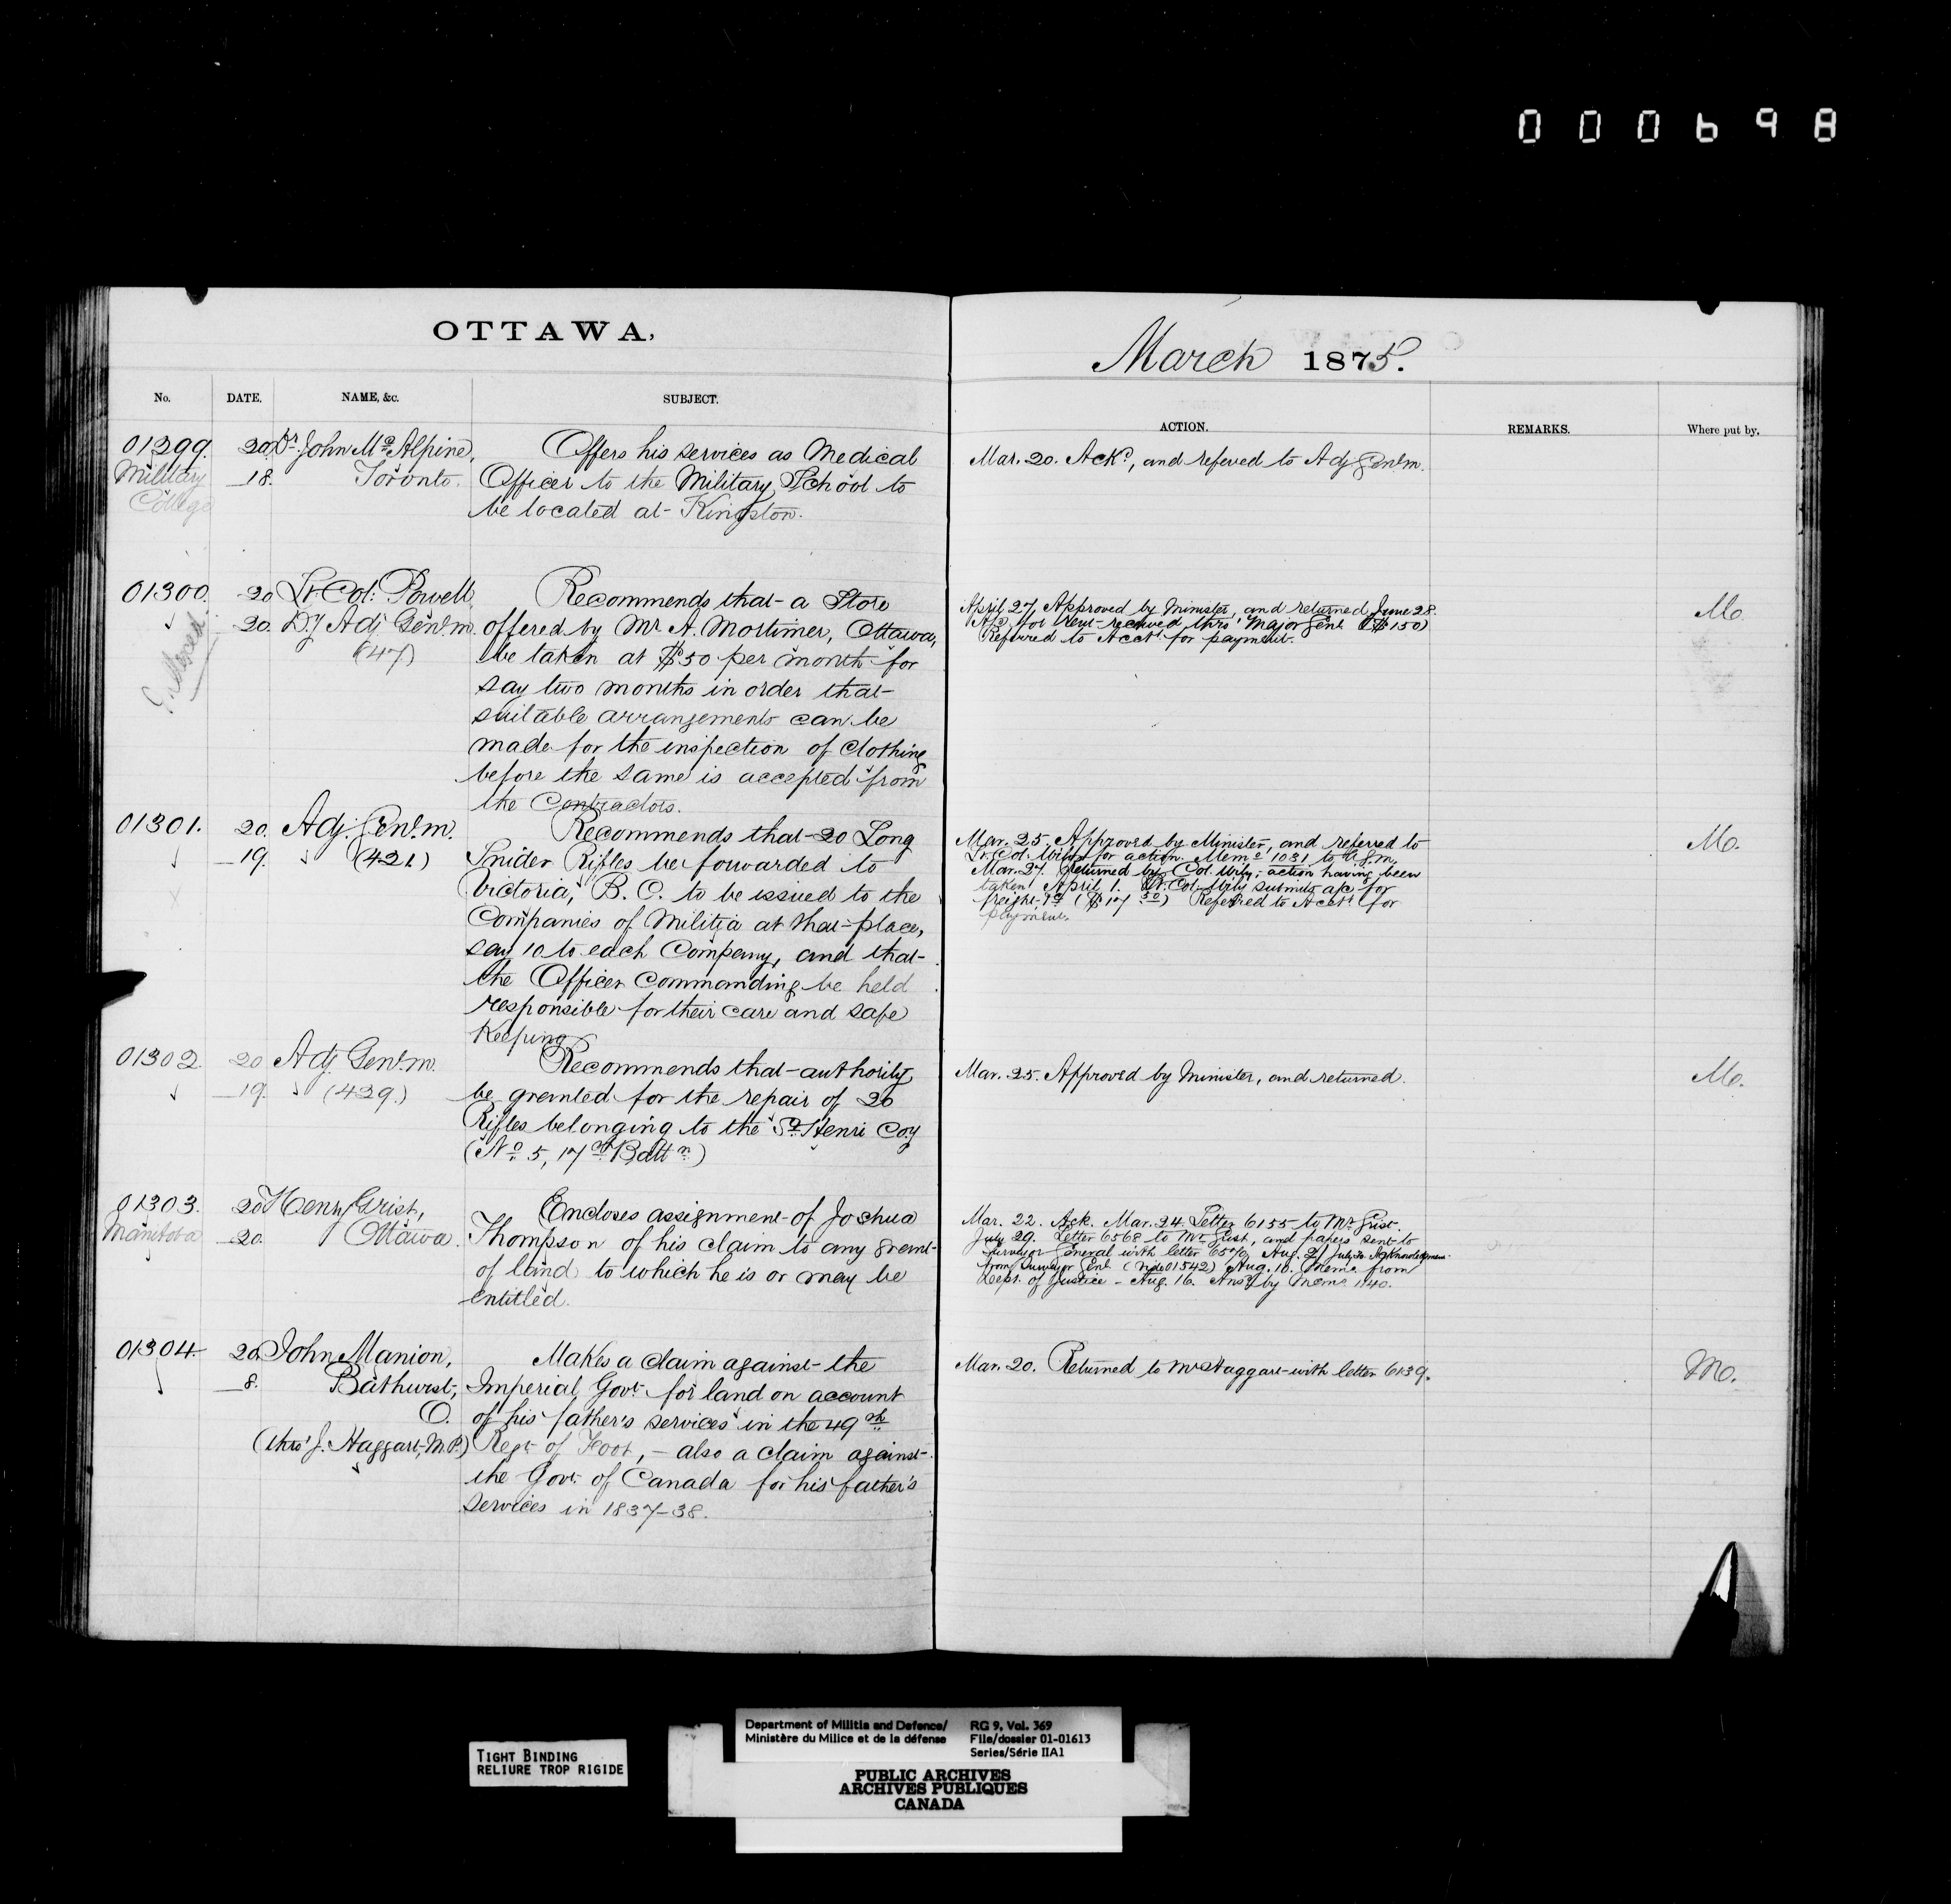 000698
OTTAWA,
March 1875.
No. DATE. NAME, &c. SUBJECT.
ACTION. REMARKS. Where put by.
01299. 20 Dr. John McAlpine, Offers his services as Medical
Military 18. Toronto. Officer to the Military School to
College be located at Kingston.
Mar. 20. Ackd, and refered to Adj Genl. m.
01300. 20 Lt. Col. Powell Recommends that a Store
20. Dy Adj Genl. m. offered by Mr A. Mortimer, Ottawa,
Enclosed (47) be taken at $50 per month for
say two months in order that
suitable arrangements can be
made for the inspection of clothing
before the same is accepted from
the Contractors.
April 27, Approved by Minister, and returned. June 28.
A/c for Rent received thro' Major Genl ($150)
Referred to Acct for payment.
Mo.
01301. 20. Adj. Genl. m. Recommends that 20 Long
19. (421) Snider Rifles be forwarded to
Victoria, B. C. to be issued to the
Companies of Militia at that place,
say 10 to each Company, and that
the Officer Commanding be held
responsible for their care and safe
Keeping
Mar. 25. Approved by Minister, and referred to
Lt. Col. Wily for action. Memo 1031 to A.G.m.
Mar. 27. Returned by Col. Wily, action having been
taken. April 1. Lt. Col. Wily submits a/c for
freight ($17 50) Referred to Acct for
payment.
Mo.
01302 20 Adj. Genl. m. Recommends that authority
19. (429.) be granted for the repair of 20
Rifles belonging to the St. Henri Coy
(No. 5, 17th Battn.)
Mar. 25. Approved by Minister, and returned.
Mo.
01303. 20 Henry Grist, Encloses assignment of Joshua
Manitoba 20. Ottawa. Thompson of his claim to any grant
of land to which he is or may be
entitled.
Mar. 22. Ack. Mar. 24. Letter 6155 to Mr Grist.
July 29. Letter 6568 to Mr Grist, and papers sent to
Surveyor General with letter 6570, Aug. 2/ July 30 Acknowledgment
from Surveyor Genl. (vide 01542) Aug. 10. Memo from
Dept. of Justice - Aug. 16. Ansd by Memo 1140.
01304 20. John Manion, Makes a claim against the
8. Bathurst, Imperial Govt. for land on account
O. of his father's services in the 49th
(thro' J. Haggart, M.P.) Regt. of Foot, - also a claim against
the Govt. of Canada for his father's
services in 1837-38.
Mar. 20. Returned to Mr Haggart with letter 6139.
Mo.
TIGHT BINDING
RELIURE TROP RIGIDE
Department of Militia and Defence/
Ministère du Milice et de la défense
RG 9, Vol. 369
File/dossier 01-01613
Series/Série IIA1
PUBLIC ARCHIVES
ARCHIVES PUBLIQUES
CANADA